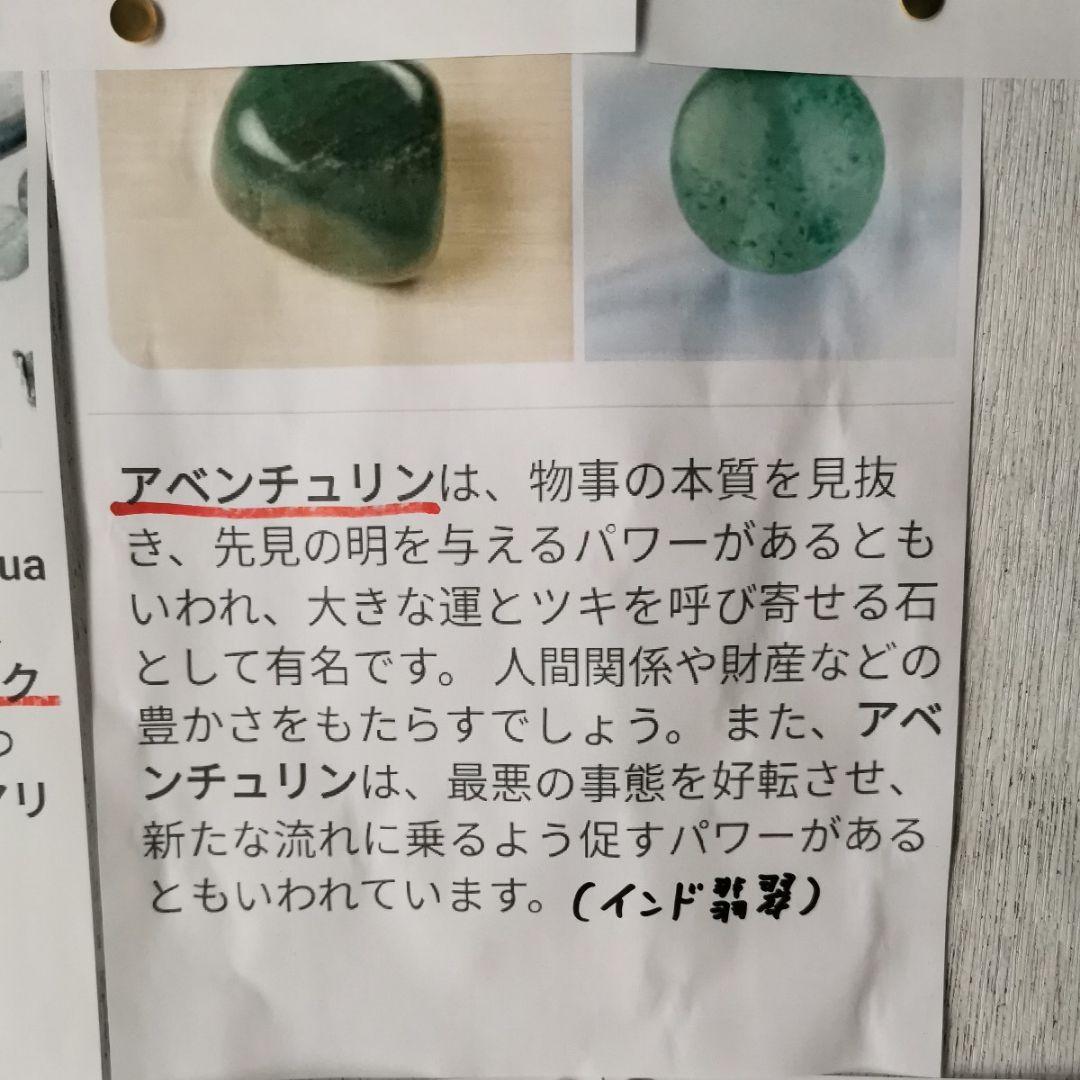 アベンチュリンは、物事の本質を見抜
き、先見の明を与えるパワーがあるとも
いわれ、大きな運とツキを呼び寄せる石
として有名です。 人間関係や財産などの
豊かさをもたらすでしょう。 また、アベ
ンチュリンは、最悪の事態を好転させ、
新たな流れに乗るよう促すパワーがある
ともいわれています。(インド翡翠)
ua
ク
アリ